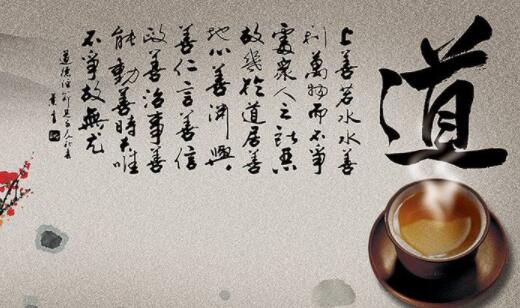 道
上善若水水善
利萬物而不爭
處衆人之所惡
故幾於道居善
地心善淵與
善仁言善信
政善治事善
能動善時夫唯
不爭故無尤
道德經節